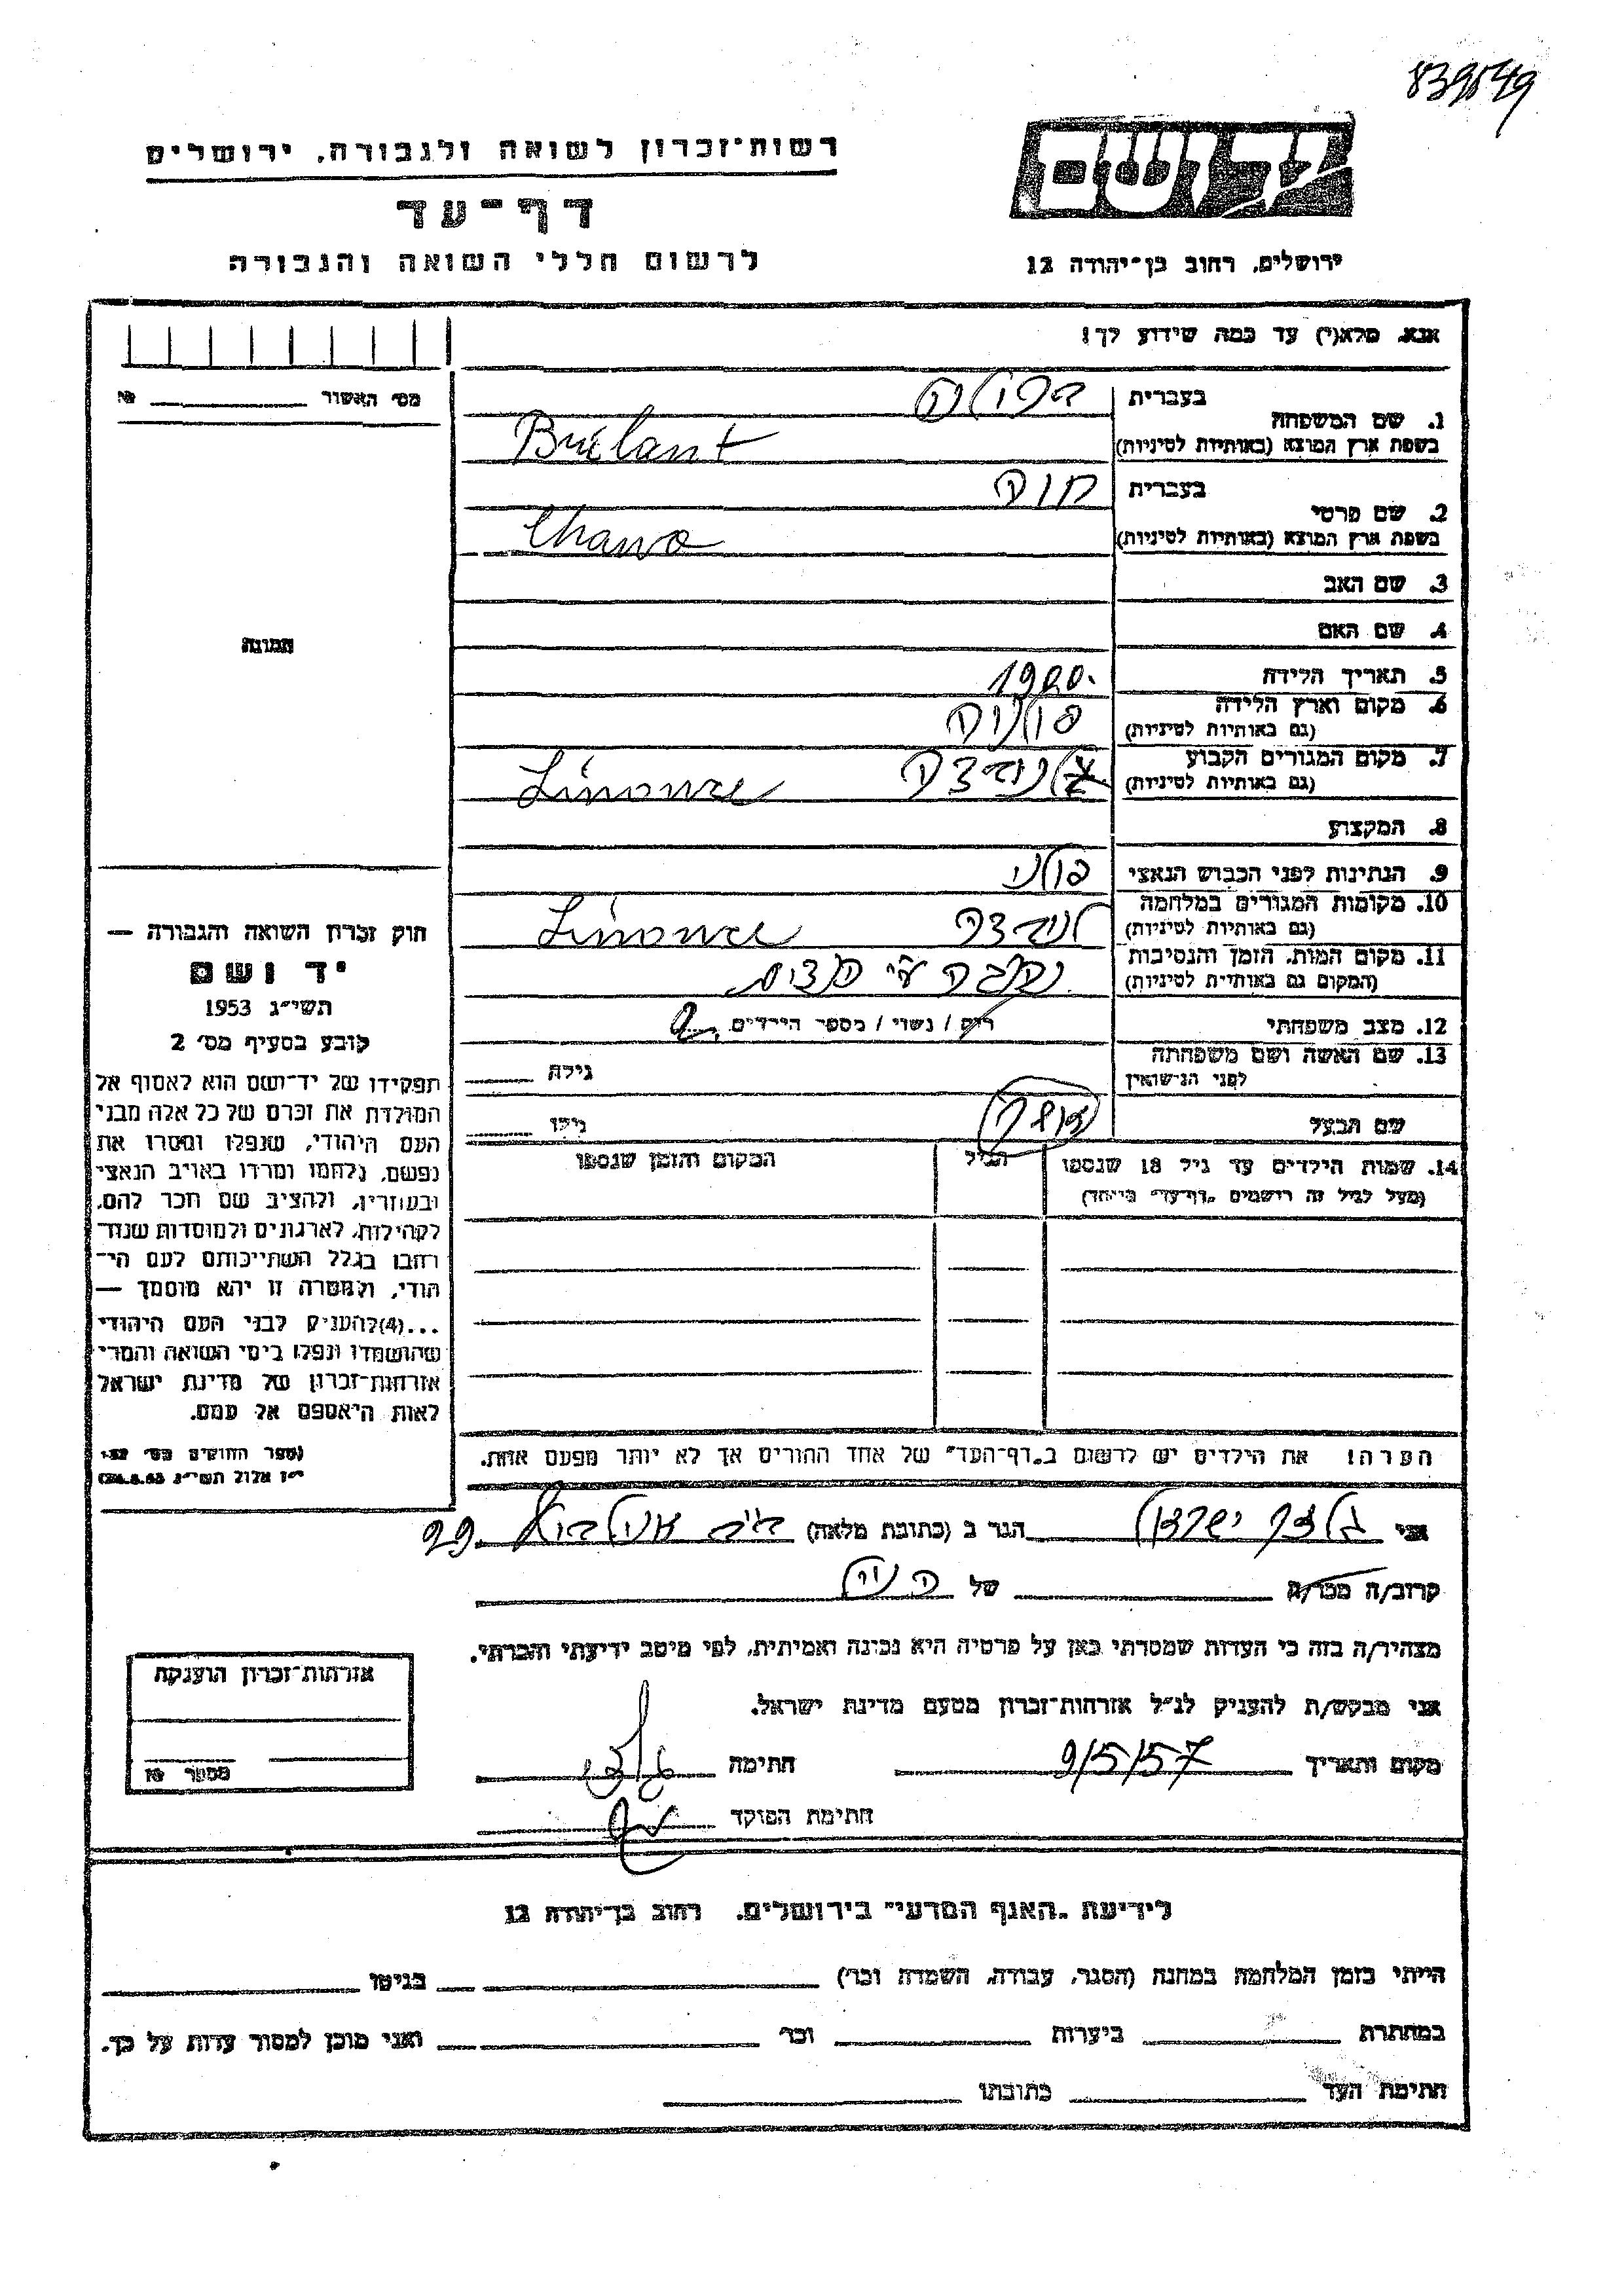 839549
רשות־זכרון לשואה ולגבורה, ירושלים
דף־עד
לרשום חללי השואה והגבורה
יד ושם
ירושלים, רחוב בן־יהודה 12
אנא, מלא(י) עד כמה שידוע לך!
מס׳ האשור № 
1. שם המשפחה
בעברית
בשפת ארץ המוצא (באותיות לטיניות)
2. שם פרטי
בעברית חנה
בשפת ארץ המוצא (באותיות לטיניות) Chana
3. שם האב
4. שם האם
תמונה
5. תאריך הלידה 1900.
6. מקום וארץ הלידה פולניה
(גם באותיות לטיניות)
7. מקום המגורים הקבוע
(גם באותיות לטיניות)
8. המקצוע
9. הנתינות לפני הכבוש הנאצי פולני
10. מקומות המגורים במלחמה
(גם באותיות לטיניות)
11. מקום המות, הזמן והנסיבות
(המקום גם באותיות לטיניות)
12. מצב משפחתי רווק / נשוי / מספר הילדים 2
13. שם האשה ושם משפחתה
לפני הנישואין
גילה
שם הבעל
גילו
14. שמות הילדים עד גיל 18 שנספו
(מעל לגיל זה רושמים „דף־עד״ מיוחד)
הגיל
המקום והזמן שנספו
הערה! את הילדים יש לרשום ב„דף־העד״ של אחד ההורים אך לא יותר מפעם אחת.
חוק זכרון השואה והגבורה —
יד ושם
תשי״ג 1953
קובע בסעיף מס׳ 2
תפקידו של יד־ושם הוא לאסוף אל
המולדת את זכרם של כל אלה מבני
העם היהודי, שנפלו ומסרו את
נפשם, נלחמו ומרדו באויב הנאצי
ובעוזריו, ולהציב שם וזכר להם,
לקהילות, לארגונים ולמוסדות שנח־
רבו בגלל השתייכותם לעם הי־
הודי, ולמטרה זו יהא מוסמך —
...(4) להעניק לבני העם היהודי
שהושמדו ונפלו בימי השואה והמרי
אזרחות־זכרון של מדינת ישראל
לאות היאספם אל עמם.
(ספר החוקים מס׳ 132
י״ז אלול תשי״ג 28.8.53)
אני
הגר ב (כתובת מלאה) 29
קרוב/ה מכר/ה של
מצהיר/ה בזה כי העדות שמסרתי כאן על פרטיה היא נכונה ואמיתית, לפי מיטב ידיעתי והכרתי.
אני מבקש/ת להעניק לנ״ל אזרחות־זכרון מטעם מדינת ישראל.
מקום ותאריך 9/5/57 חתימה
חתימת הפוקד
אזרחות־זכרון הוענקה
מספר №
לידיעת „האגף המדעי״ בירושלים, רחוב בן־יהודה 12
הייתי בזמן המלחמה במחנה (הסגר, עבודה, השמדה וכו׳) בגיטו
במחתרת ביערות וכו׳ ואני מוכן למסור עדות על כך.
חתימת העד כתובתו